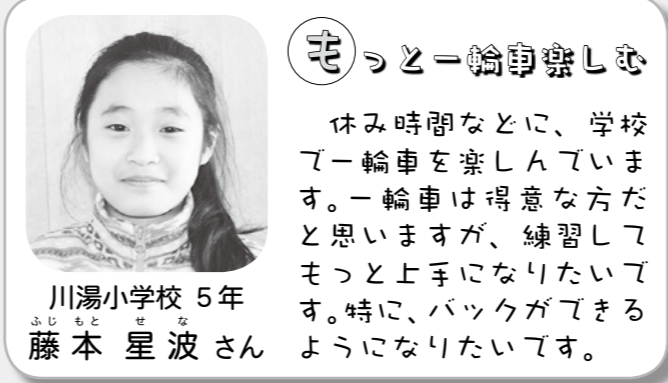 もっと一輪車楽しむ
休み時間などに、学校
で一輪車を楽しんでいま
す。一輪車は得意な方だ
と思いますが、練習して
もっと上手になりたいで
す。特に、バックができる
ようになりたいです。
川湯小学校 5年
ふじ もと せ な
藤本 星波 さん